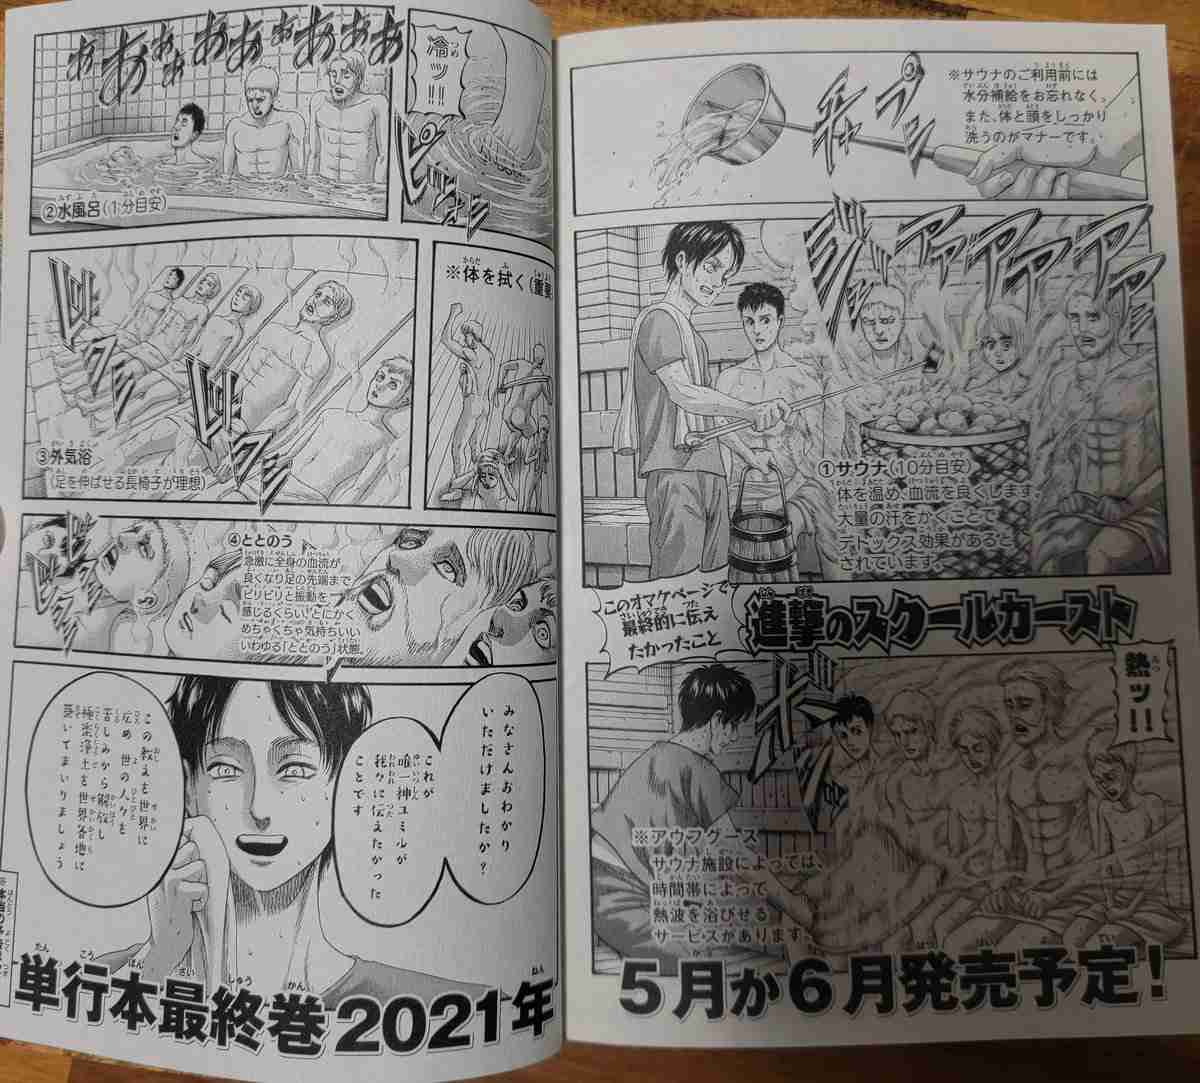 ※サウナのご利用前には
水分補給をお忘れなく。
また、体と頭をしっかり
洗うのがマナーです。
チャ
プッ
ジュッ
アアアアア
①サウナ(10分目安)
体を温め、血流を良くします。
大量の汗をかくことで
デトックス効果があると
されています。
このオマケページで
最終的に伝え
たかったこと
進撃のスクールカースト
熱ッ!!
※アウフグース
サウナ施設によっては、
時間帯によって
熱波を浴びせる
サービスがあります。
冷ッ!!
ピ
②水風呂(1分目安)
※体を拭く(重要
ドクン
ドクン
③外気浴
(足を伸ばせる長椅子が理想)
④ととのう
急激に全身の血流が
良くなり足の先端まで
ピリピリと振動を
感じるくらいとにかく
めちゃくちゃ気持ちいい
いわゆる「ととのう」状態。
みなさんおわかり
いただけましたか?
これが
唯一神ユミルが
我々に伝えたかった
ことです
この教えを世界に
広め世の人々を
苦しみから解放し
極楽浄土を世界各地に
築いてまいりましょう
単行本最終巻2021年
5月か6月発売予定!